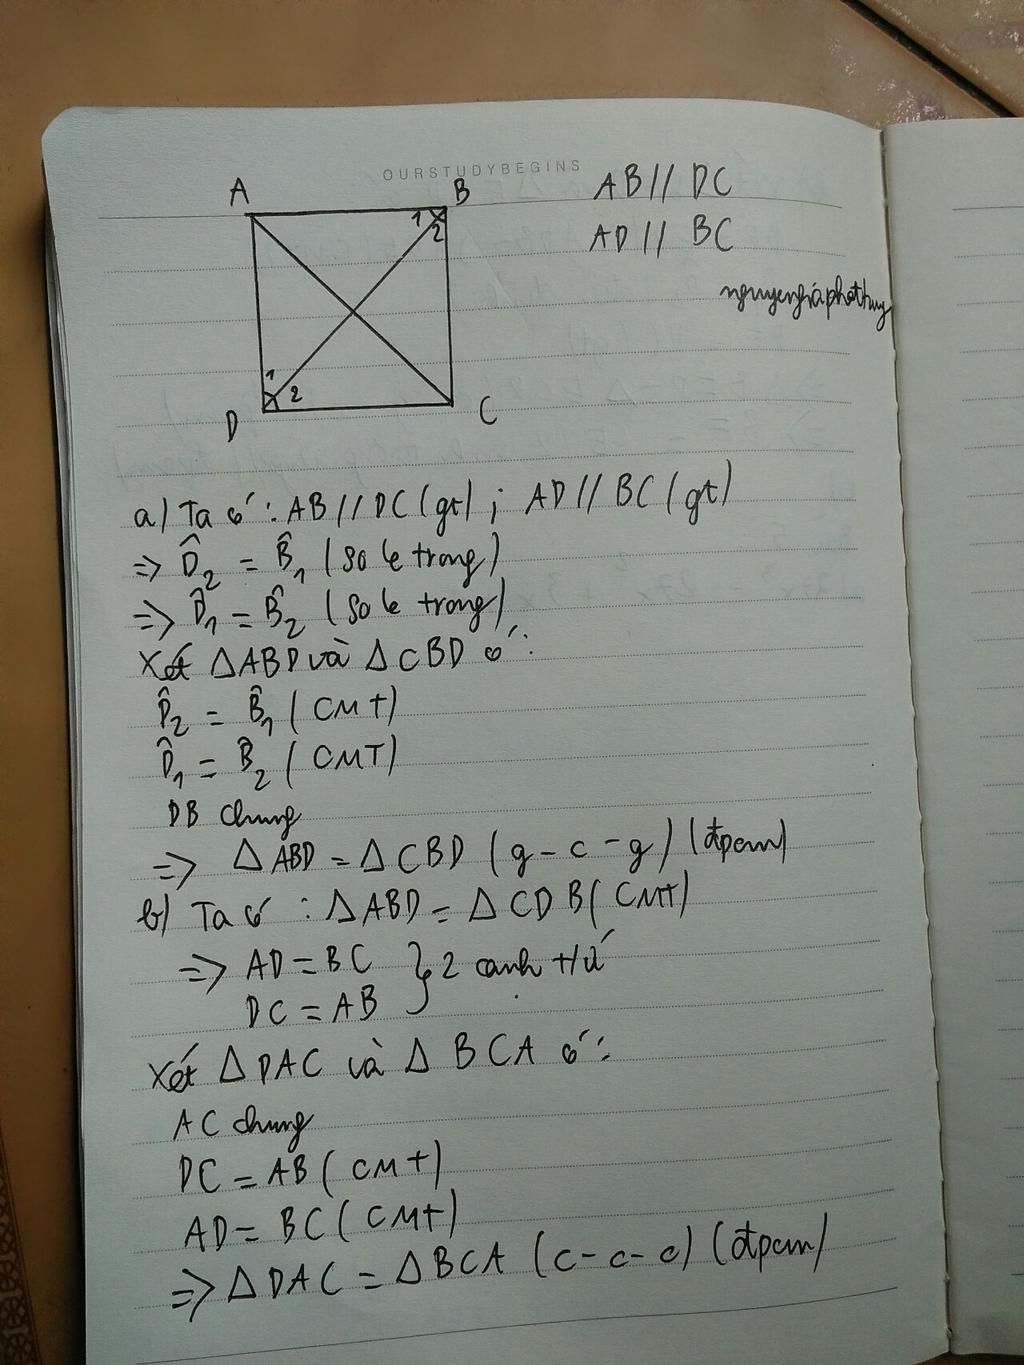 OURSTUDYBEGINS
A
B
AB // DC
1
2
AD // BC
nguyengiaphathuy
1
2
D
C
a) Ta có: AB // DC (gt) ; AD // BC (gt)
=> D̂₂ = B̂₁ (so le trong)
=> D̂₁ = B̂₂ (so le trong)
Xét ΔABD và ΔCBD có:
D̂₂ = B̂₁ (CMt)
D̂₁ = B̂₂ (CMT)
DB chung
=> ΔABD = ΔCBD (g-c-g) (đpcm)
b) Ta có : ΔABD = ΔCDB (CMt)
=> AD = BC } 2 cạnh t/ứ
DC = AB
Xét ΔDAC và ΔBCA có:
AC chung
DC = AB (CMt)
AD = BC (CMt)
=> ΔDAC = ΔBCA (c-c-c) (đpcm)